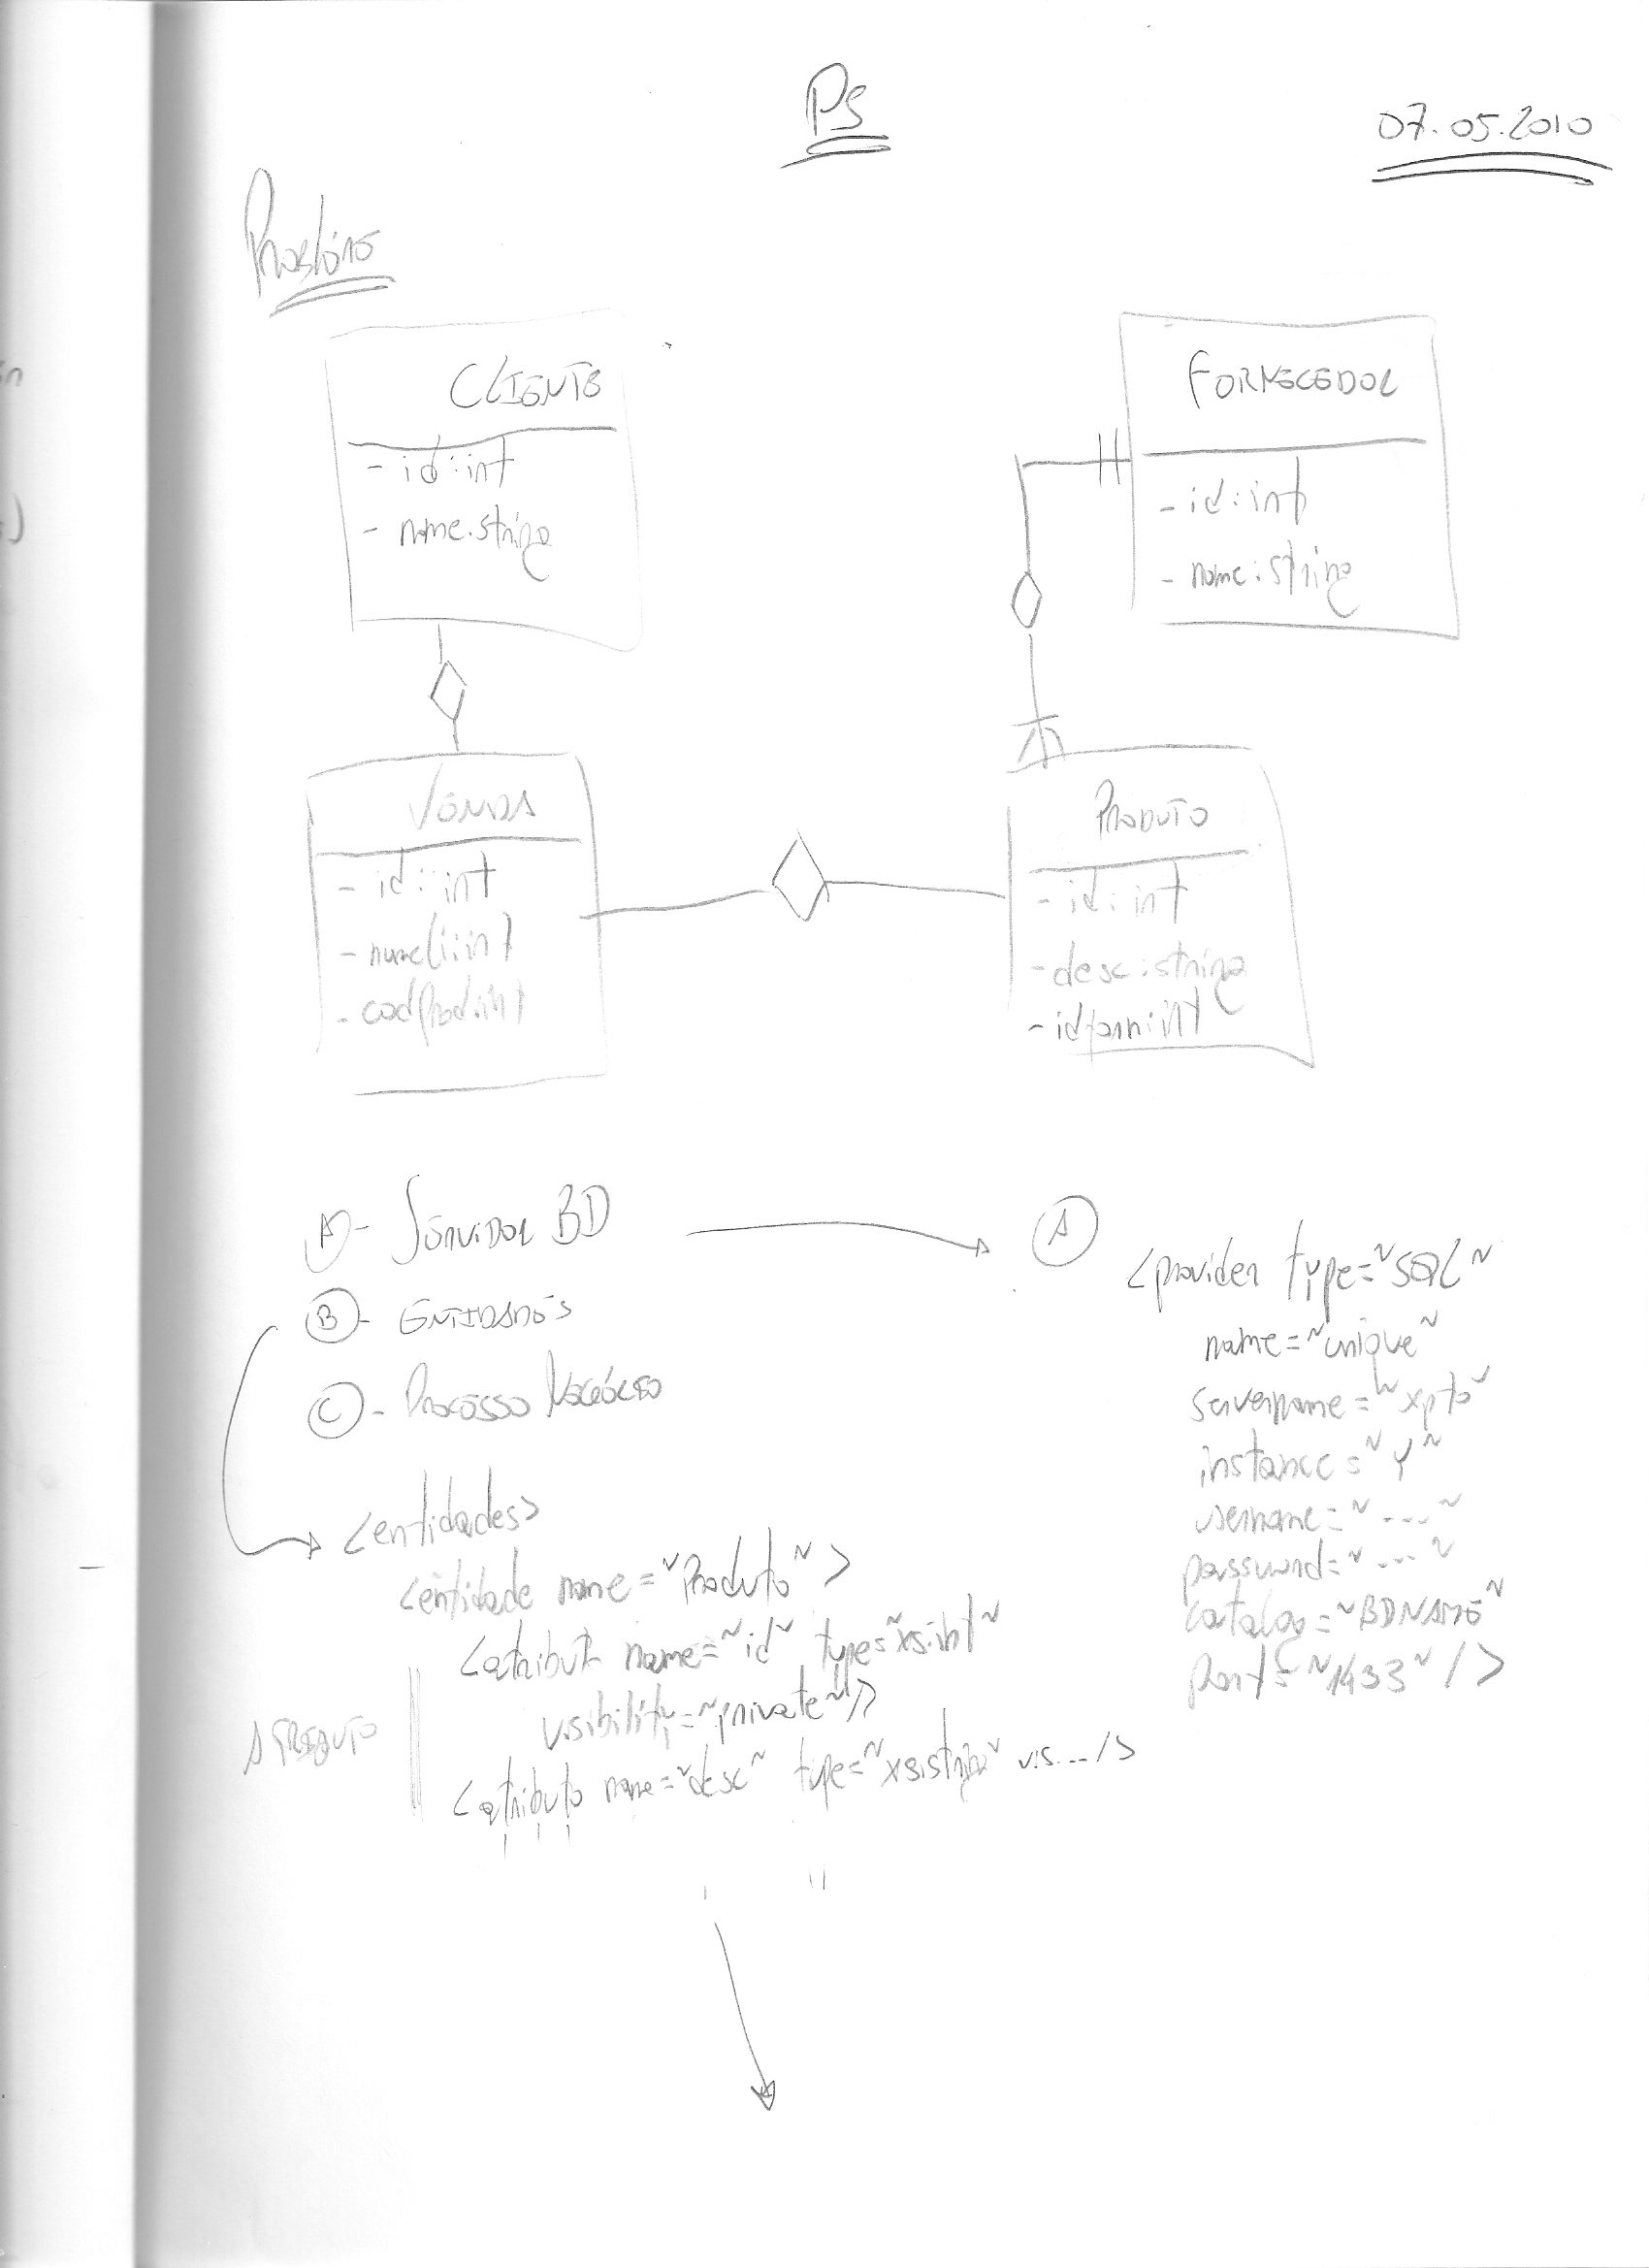 PS
07.05.2010
CLIENTE
- id:int
- nome:string
FORNECEDOR
- id:int
- nome:string
VENDA
- id:int
- numcli:int
- codProd:int
PRODUTO
- id:int
- desc:string
- idforn:int
A - SERVIDOR BD
B - ENTIDADES
C - PROCESSO NEGÓCIO
A
<provider type="SQL"
name="unique"
servername="xpto"
instance="Y"
username="...."
password="...."
catalog="BDNAME"
port="1433"/>
<entidades>
<entidade name="Produto">
<atribut name="id" type="xs:int"
visibility="private"/>
ATRIBUTO
<atributo name="desc" type="xs:string" vis..../>